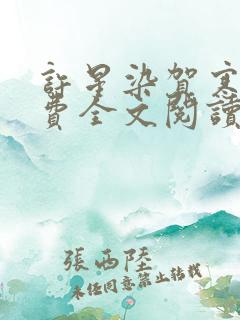 許星染賀寒
費全文閱讀
張西陸
未經同意禁止轉載